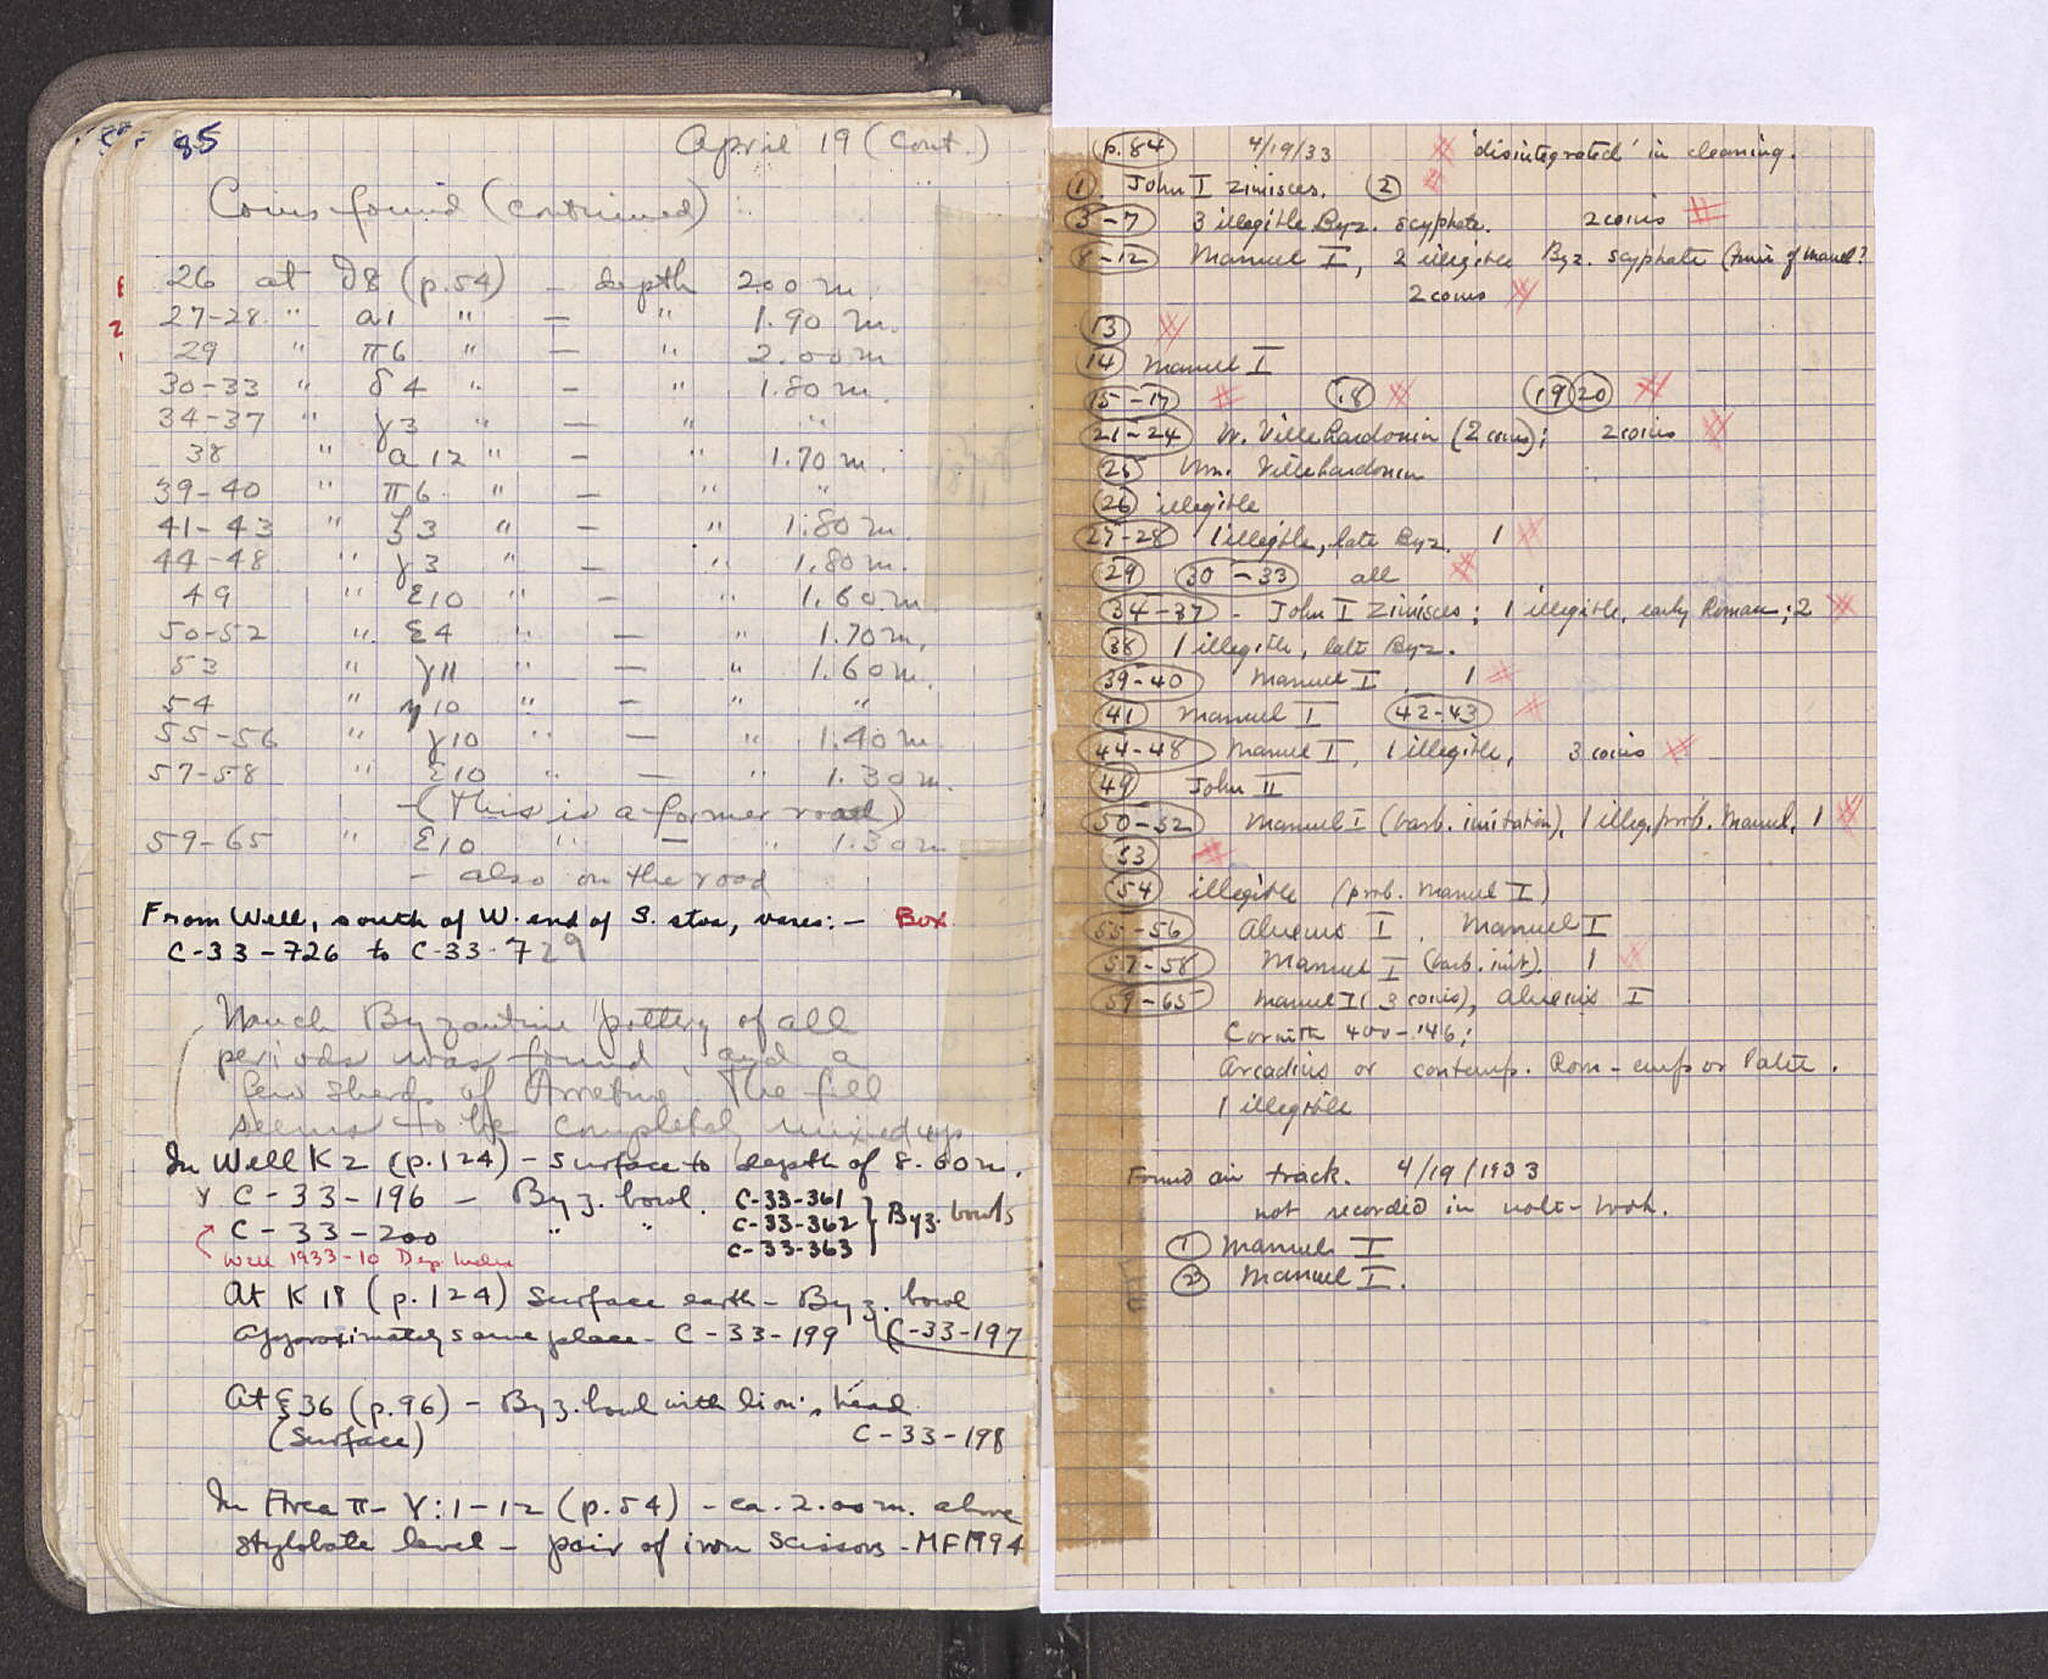 85
April 19 (Cont.)
Coins found (continued)
26 at θ8 (p.54) - depth 2.00 m.
27-28 " a1 " - " 1.90 m.
29 " π6 " - " 2.00 m
30-33 " δ4 " - " 1.80 m.
34-37 " γ3 " - " "
38 " a12 " - " 1.70 m.
39-40 " π6 " - " "
41-43 " ξ3 " - " 1.80 m.
44-48 " γ3 " - " 1.80 m.
49 " ε10 " - " 1.60 m
50-52 " ε4 " - " 1.70 m.
53 " γ11 " - " 1.60 m.
54 " η10 " - " "
55-56 " γ10 " - " 1.40 m.
57-58 " ε10 " - " 1.30 m.
- (This is a former road)
59-65 " ε10 " - " 1.30 m
- also on the road
From Well, south of W. end of S. stoa, vases:- Box
C-33-726 to C-33-729
Much Byzantine pottery of all
periods was found and a
few sherds of Arretine. The fill
seems to be completely mixed up
In Well K2 (p.124) - surface to depth of 8.60 m.
γ C-33-196 - Byz. bowl. C-33-361
C-33-200 " " C-33-362 } Byz. bowls
C-33-363
Well 1933-10 Dep. Index
At K18 (p.124) surface earth - Byz. bowl
approximately same place - C-33-199 C-33-197
At ξ36 (p.96) - Byz. bowl with lion's head
(surface) C-33-198
In Area π-γ:1-12 (p.54) - ca. 2.00 m. above
stylobate level - pair of iron scissors - MF 1994
p.84 4/19/33 # 'disintegrated' in cleaning.
1 John I Zimisces. 2 #
3-7 3 illegible Byz. scyphate. 2 coins #
8-12 Manuel I, 2 illegible Byz. scyphate (time of Manuel?
2 coins #
13 #
14 Manuel I
15-17 # 18 # 19 20 #
21-24 W. Villehardouin (2 coins); 2 coins #
25 Wm. Villehardouin
26 illegible
27-28 1 illegible, late Byz. 1 #
29 30-33 all #
34-37 - John I Zimisces; 1 illegible, early Roman; 2 #
38 1 illegible, late Byz.
39-40 Manuel I, 1 #
41 Manuel I 42-43 #
44-48 Manuel I, 1 illegible, 3 coins #
49 John II
50-52 Manuel I (barb. imitation), 1 illeg. prob. Manuel, 1 #
53 #
54 illegible (prob. Manuel I)
55-56 Alexius I, Manuel I
57-58 Manuel I (barb. imit). 1 #
59-65 Manuel I (3 coins), Alexius I
Corinth 400-146;
Arcadius or contemp. Rom-emp or later.
1 illegible
Found on track. 4/19/1933
not recorded in note-book.
1 Manuel I
2 Manuel I.